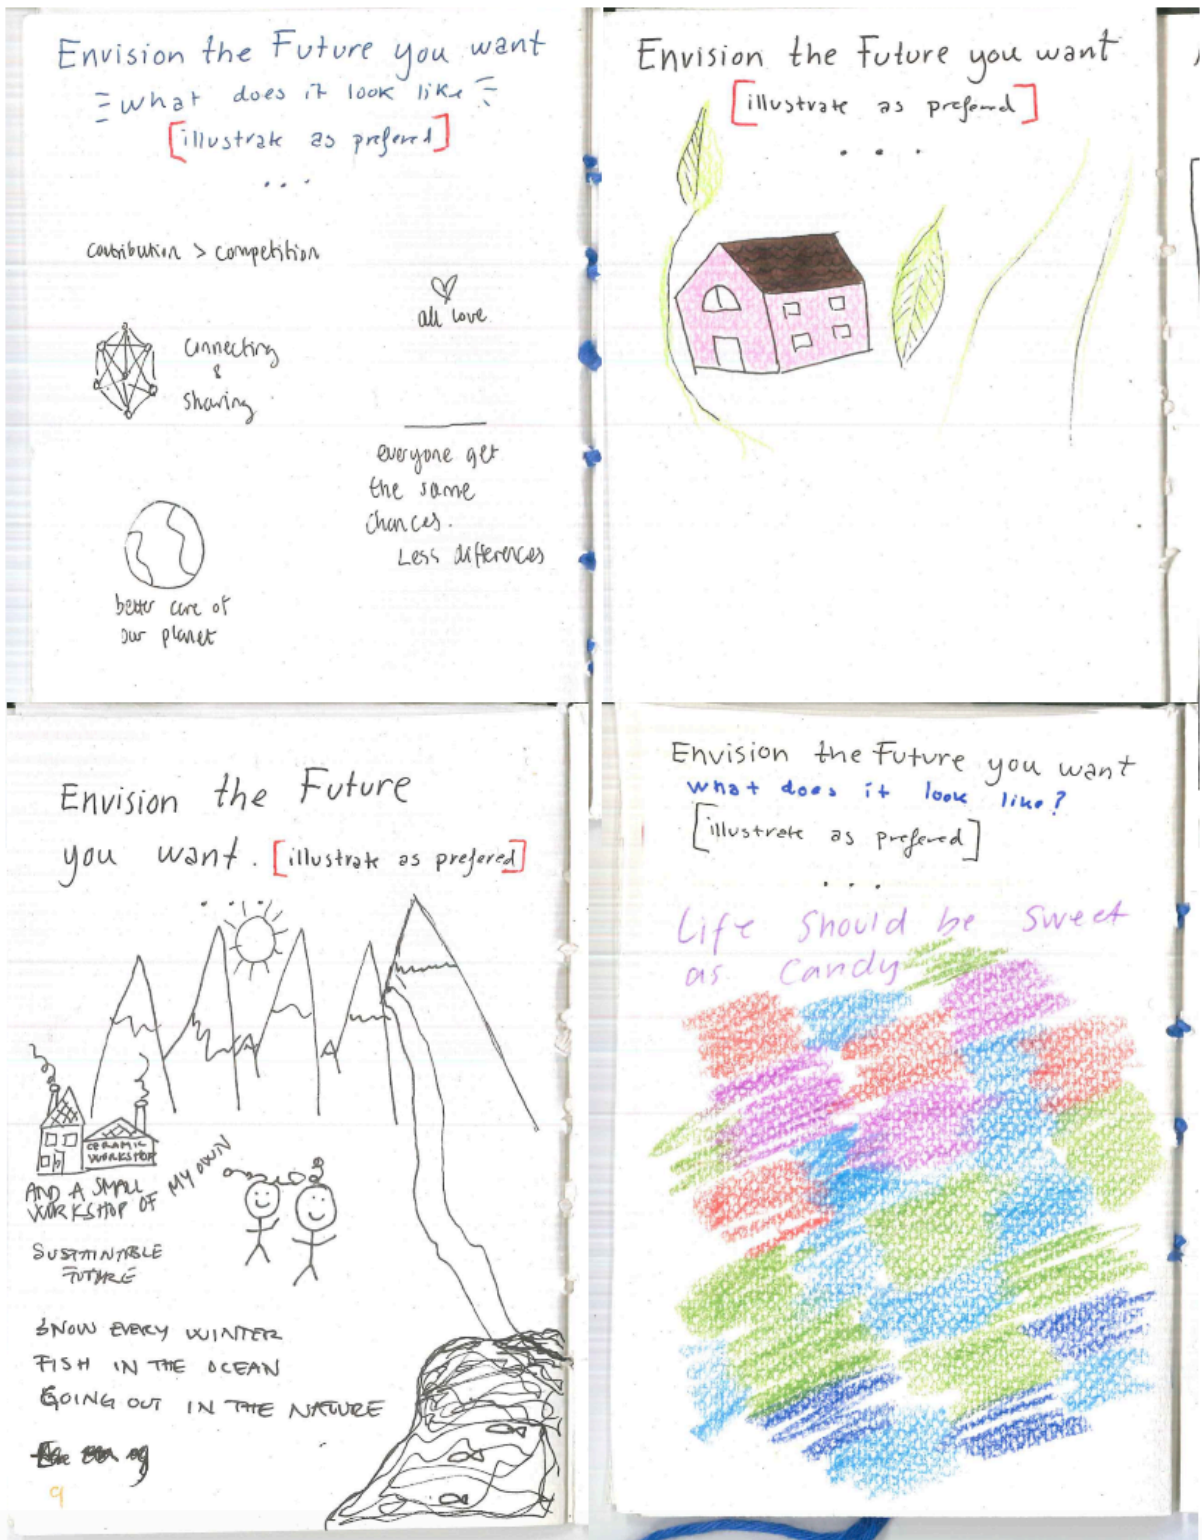 Envision the Future you want
What does it look like
[illustrate as prefered]
...
contribution > competition
all love
connecting
&
sharing
everyone get
the same
chances.
Less differences
better care of
our planet
Envision the Future you want
[illustrate as prefered]
...
Envision the Future
you want. [illustrate as prefered]
...
CERAMIC
WORKSHOP
AND A SMALL
WORKSHOP OF MY OWN
SUSTAINABLE
FUTURE
SNOW EVERY WINTER
FISH IN THE OCEAN
GOING OUT IN THE NATURE
9
Envision the Future you want
what does it look like?
[illustrate as prefered]
...
Life Should be Sweet
as Candy